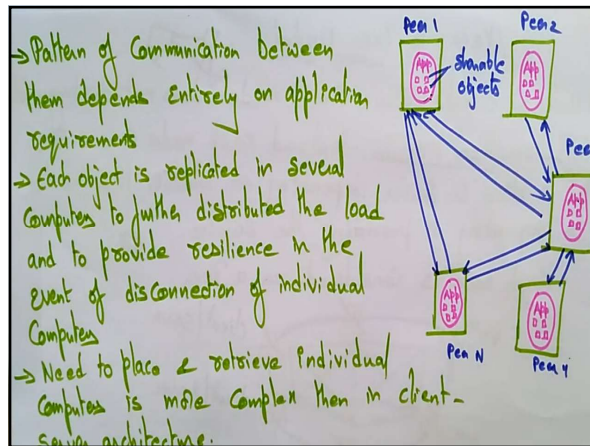 Peer 1
Peer 2
→ Pattern of Communication between
them depends Entirely on application
requirements
→ Each object is replicated in several
Computers to further distributed the load
and to provide resilience in the
event of disconnection of individual
Computers
→ Need to place & retrieve individual
Computers is more Complex then in client-
server architecture.
App
sharable
objects
App
Peer
App
App
App
Peer N
Peer 4